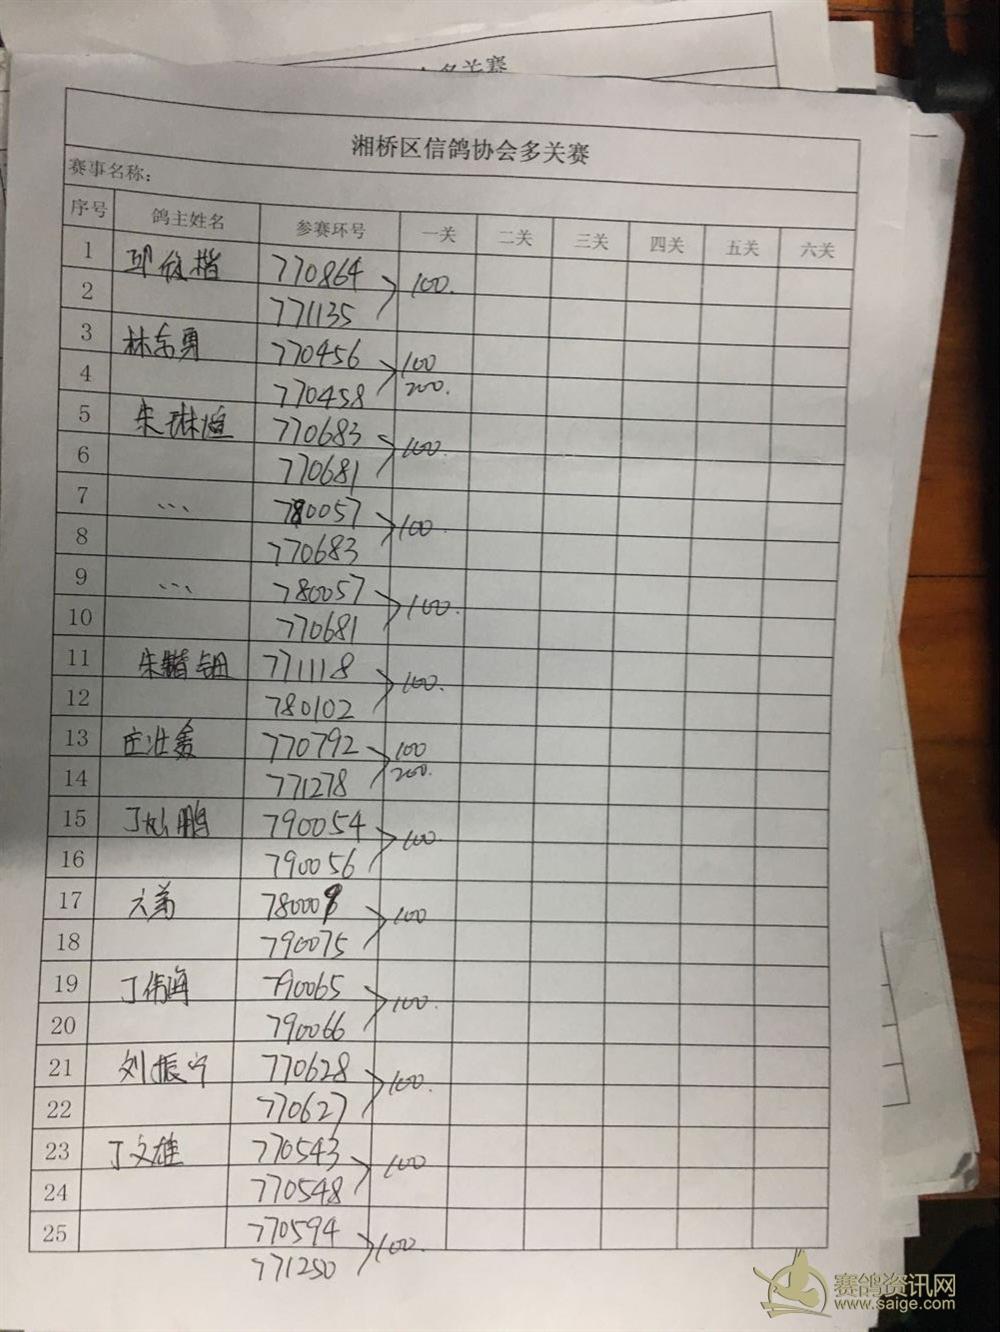 名关赛
湘桥区信鸽协会多关赛
赛事名称:
序号 鸽主姓名 参赛环号 一关 二关 三关 四关 五关 六关
1 邱俊楷 770864 100.
2 771135
3 林东勇 770456 100
4 770458 200.
5 朱琳煊 770683 100.
6 770681
7 ... 780057 100.
8 770683
9 ... 780057 100.
10 770681
11 朱 771118 100.
12 780102
13 庄壮 770792 100
14 771278 200.
15 丁 鹏 790054 100
16 790056
17 六弟 780008 100
18 790075
19 丁伟海 790065 100.
20 790066
21 刘振宁 770628 100.
22 770627
23 丁文雄 770543 100
24 770548
25 770594 100.
771250
赛鸽资讯网
www.saige.com